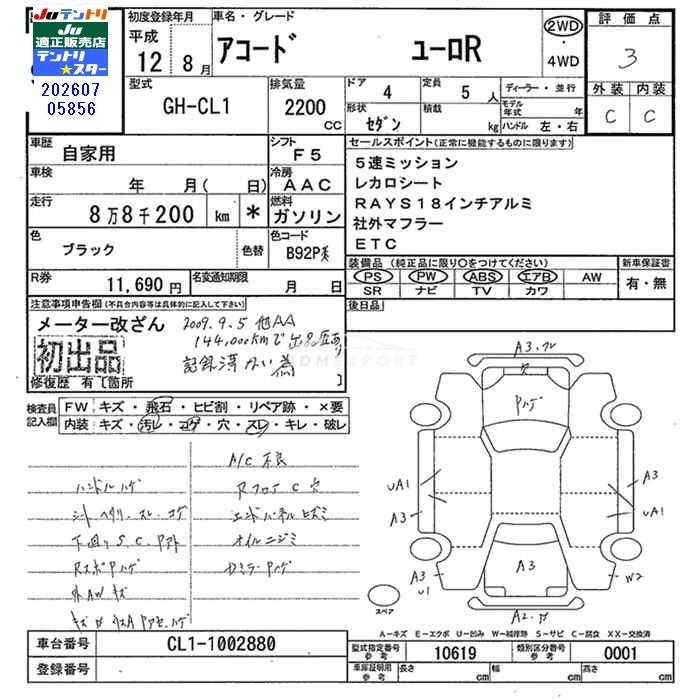 Juテントリ
Ju
適正販売店
テントリ
★スター
202607
05856
初度登録年月
平成
12 8月
車名・グレード
アコード ユーロR
2WD
・
4WD
評価点
3
外装 内装
C C
型式
GH-CL1
排気量
2200
CC
ドア
4
定員
5 人
ディーラー・並行
形状
セダン
積載
kg
モデル年式
年
ハンドル 左・右
車歴
自家用
シフト
F5
セールスポイント(正常に機能するものに限ります)
5速ミッション
レカロシート
RAYS18インチアルミ
社外マフラー
ETC
車検
年 月( 日)
冷房
AAC
走行
8万8千200 km *
燃料
ガソリン
色
ブラック
色替
色コード
B92P
R券
11,690円
名変通知期限
月 日
装備品(純正品に限り○をつけてください)
PS PW ABS エアB AW
SR ナビ TV カワ
新車保証書
有・無
後日品
注意事項申告欄(不具合内容等は具体的に記入して下さい)
メーター改ざん
2009.9.5 他AA
144,000kmで出品
記録簿
初出品
修復歴 有〔箇所 〕
検査員
記入欄
FW キズ・飛石・ヒビ割・リペア跡・×要
内装 キズ・汚レ・コゲ・穴・スレ・キレ・破レ
A/C 不良
ハンドルハゲ
シートヘタリ、スレ、コゲ
エンドパネルヒズミ
下回り S、C、Pアト
オイルニジミ
RスポPハゲ
外AWキズ
A3
Pハゲ
UA1
A3
A3
UA1
A3
A3
U1
W2
スペア
A-キズ E-エクボ U-凹み W-補修跡 S-サビ C-腐食 XX-交換済
車台番号
CL1-1002880
登録番号
型式指定番号
参考
10619
類別区分番号
参考
0001
車庫証明用
参考
長さ cm
幅 cm
高さ cm